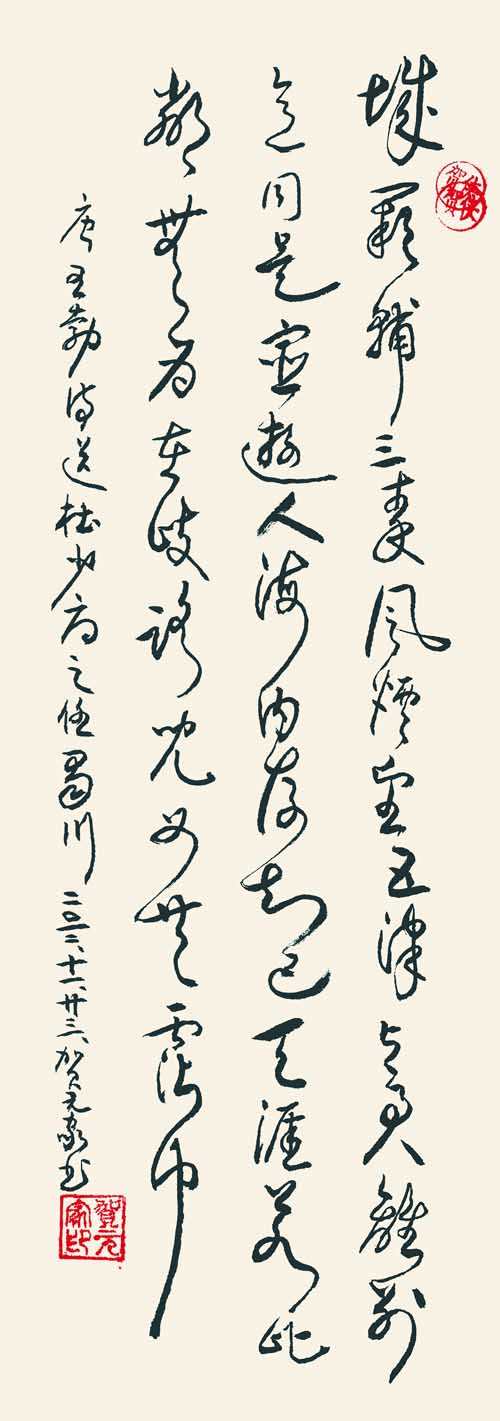 城闕輔三秦風煙望五津與君離別
意同是宦遊人海内存知己天涯若比
鄰無為在歧路兒女共霑巾
唐王勃詩送杜少府之任蜀川 二〇一二、十一、廿三、贺元家书
賀元家印